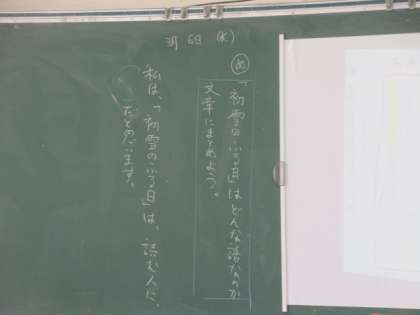 3月6日(水)
め
「初雪のふる日」はどんな話なのか
文章にまとめよう。
私は、「初雪のふる日」は、読む人に、
（　）だと思います。